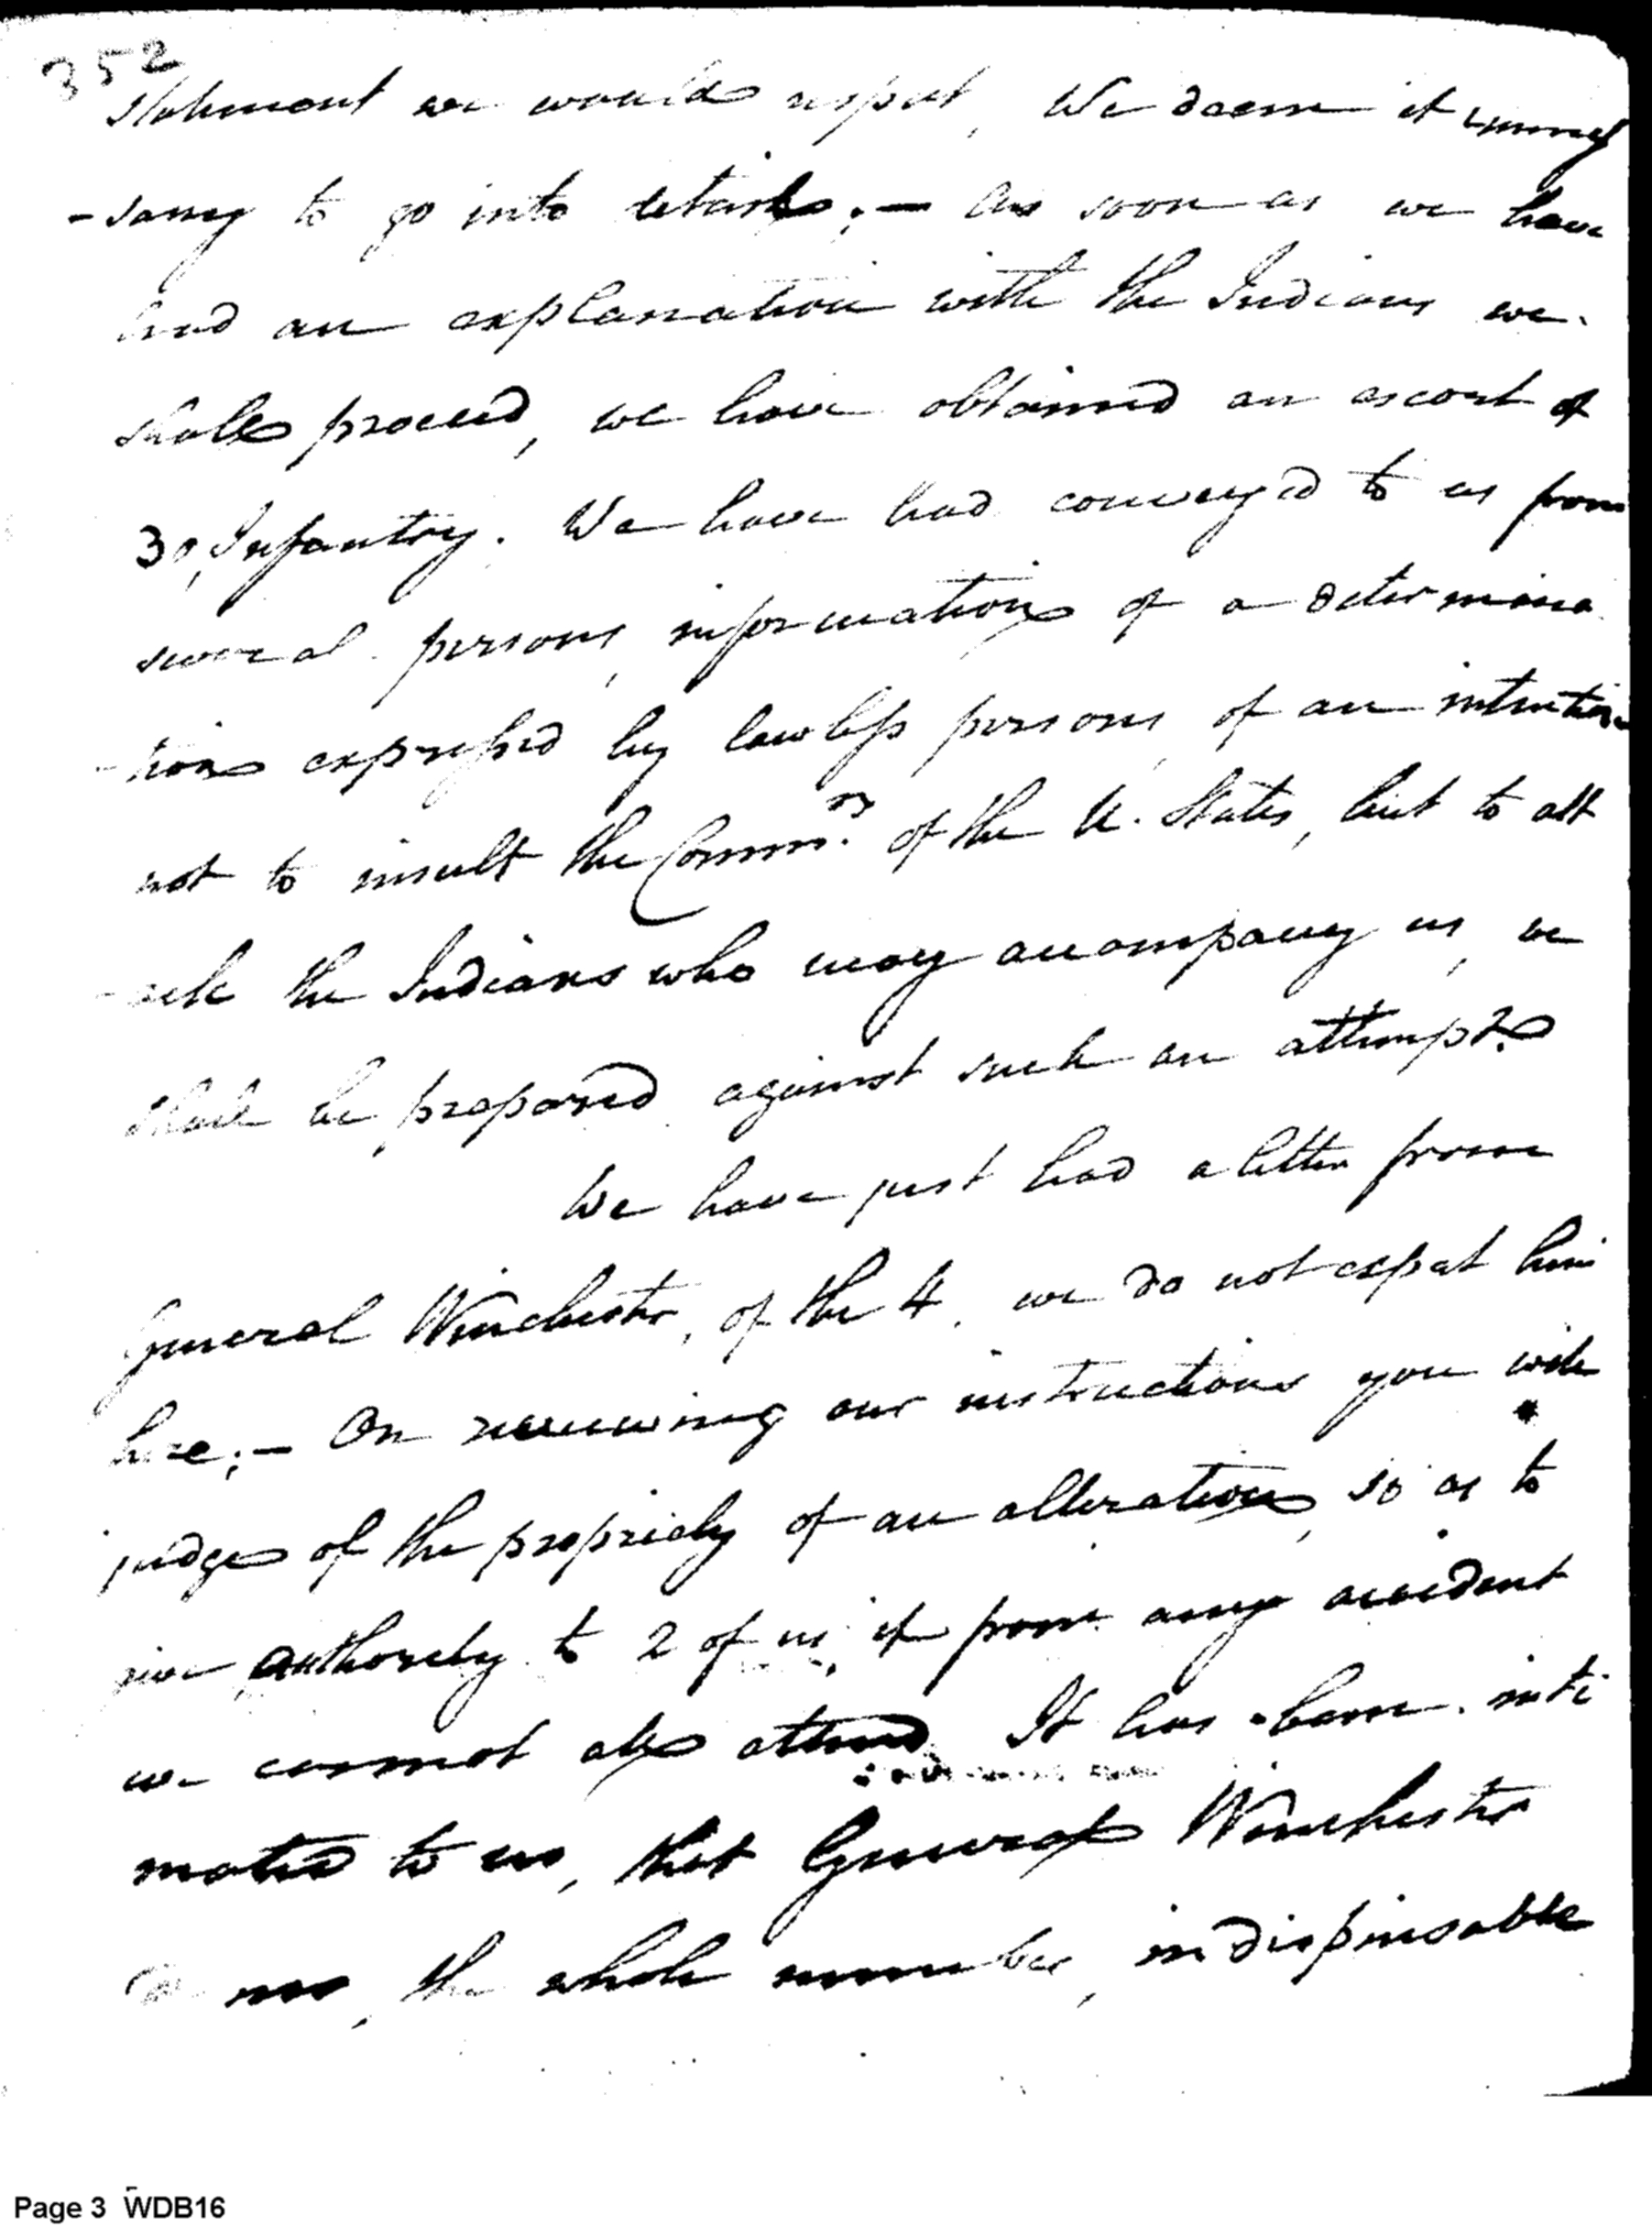 352
statement we would expect, We deem it unneces
-sary to go into details;— As soon as we have
had an explanation with the Indians we
shall proceed, we have obtained an escort of
30, Infantry. We have had conveyed to us from
several persons, information of a determina
-tion expressed by lawless persons, of an intention
not to insult the Commrs. of the U. States, but to att
-ack the Indians who may accompany us, we
shall be prepared against such an attempt.
We have just had a letter from
General Winchester, of the 4, we do not expect him
here;— On reviewing our instructions you will
judge of the propriety of an alteration, so as to
give authority to 2 of us, if from any accident
we cannot all attend. It has been inti
mated to us, that General Winchester
the whole number, indispensable
Page 3 WDB16